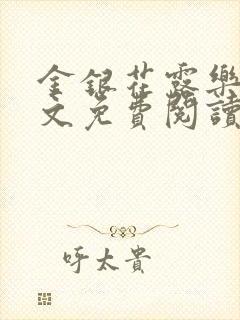 金銀花露樂
文免費閱讀
呼太貴